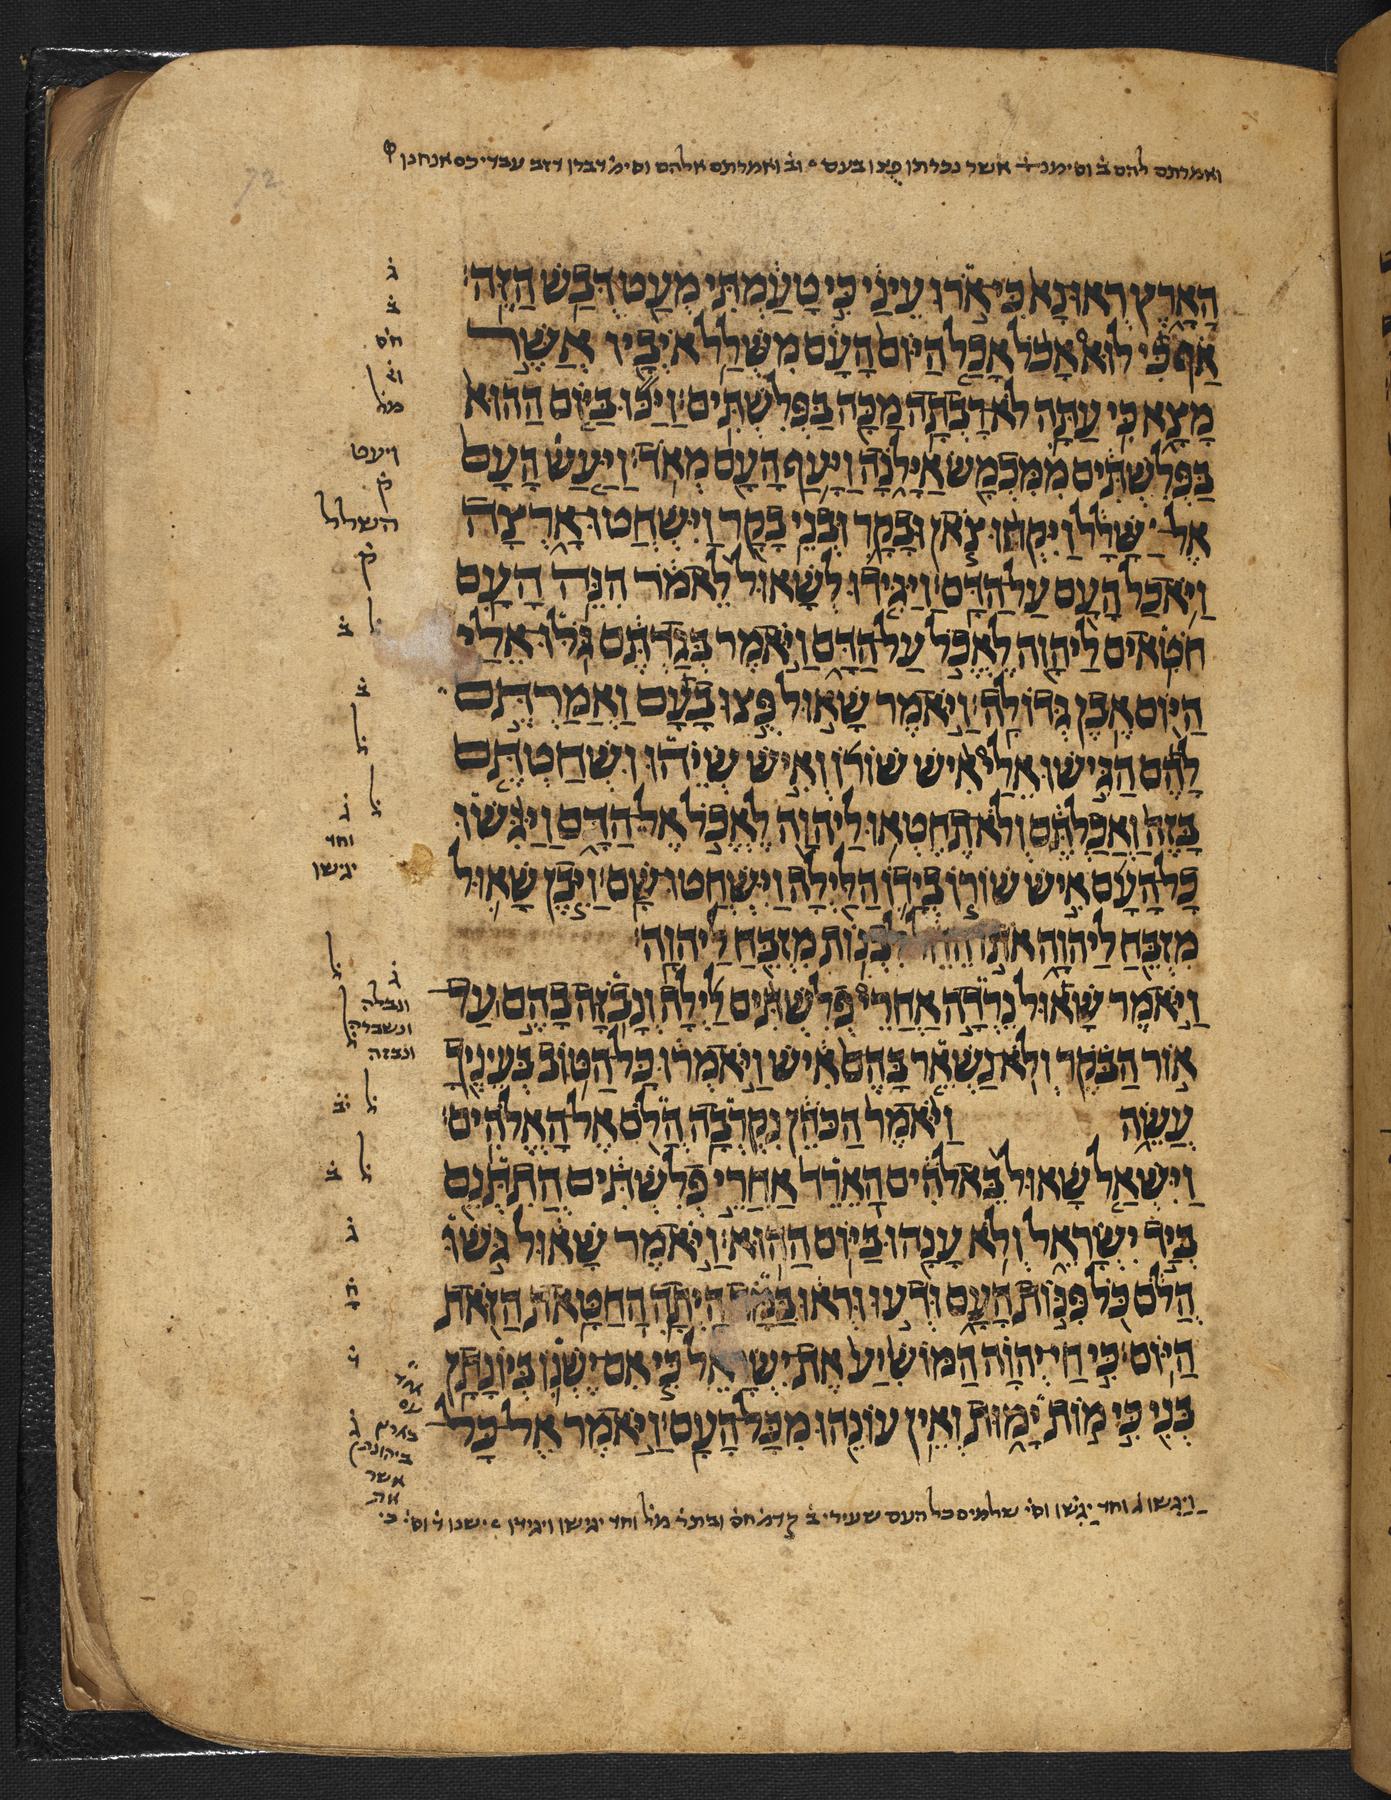 ואמרתם להם ב̇ וסימנ אשר נכרתו פצו בעם ׃ וב̇ ואמרתם אלהם וסימ̇ דברו דזב עבדיכם אנחנו
הָאָרֶץ רְאוּ נָא כִּי אֹרוּ עֵינַי כִּי טָעַמְתִּי מְעַט דְּבַשׁ הַזֶּה׃
אַף כִּי לוּא אָכֹל אָכַל הַיּוֹם הָעָם מִשְּׁלַל אֹיְבָיו אֲשֶׁר
מָצָא כִּי עַתָּה לֹא רָבְתָה מַכָּה בַּפְּלִשְׁתִּים׃ וַיַּכּוּ בַּיּוֹם הַהוּא
בַּפְּלִשְׁתִּים מִמִּכְמָשׂ אַיָּלֹנָה וַיָּעַף הָעָם מְאֹד׃ וַיַּעַשׂ הָעָם
אֶל־ שָׁלָל וַיִּקְחוּ צֹאן וּבָקָר וּבְנֵי בָקָר וַיִּשְׁחֲטוּ אָרְצָה
וַיֹּאכַל הָעָם עַל הַדָּם׃ וַיַּגִּידוּ לְשָׁאוּל לֵאמֹר הִנֵּה הָעָם
חֹטְאִים לַיהוָה לֶאֱכֹל עַל הַדָּם וַיֹּאמֶר בְּגַדְתֶּם גֹּלּוּ אֵלַי
הַיּוֹם אֶבֶן גְּדוֹלָה׃ וַיֹּאמֶר שָׁאוּל פֻּצוּ בָעָם וַאֲמַרְתֶּם
לָהֶם הַגִּישׁוּ אֵלַי אִישׁ שׁוֹרוֹ וְאִישׁ שְׂיֵהוּ וּשְׁחַטְתֶּם
בָּזֶה וַאֲכַלְתֶּם וְלֹא תֶחֶטְאוּ לַיהוָה לֶאֱכֹל אֶל הַדָּם וַיַּגִּשׁוּ
כָל הָעָם אִישׁ שׁוֹרוֹ בְיָדוֹ הַלַּיְלָה וַיִּשְׁחֲטוּ שָׁם׃ וַיִּבֶן שָׁאוּל
מִזְבֵּחַ לַיהוָה אֹתוֹ הֵחֵל לִבְנוֹת מִזְבֵּחַ לַיהוָה׃
וַיֹּאמֶר שָׁאוּל נֵרְדָה אַחֲרֵי פְלִשְׁתִּים לַיְלָה וְנָבֹזָה בָהֶם עַד
אוֹר הַבֹּקֶר וְלֹא נַשְׁאֵר בָּהֶם אִישׁ וַיֹּאמְרוּ כָּל הַטּוֹב בְּעֵינֶיךָ
עֲשֵׂה וַיֹּאמֶר הַכֹּהֵן נִקְרְבָה הֲלֹם אֶל הָאֱלֹהִים׃
וַיִּשְׁאַל שָׁאוּל בֵּאלֹהִים הַאֵרֵד אַחֲרֵי פְלִשְׁתִּים הֲתִתְּנֵם
בְּיַד יִשְׂרָאֵל וְלֹא עָנָהוּ בַּיּוֹם הַהוּא׃ וַיֹּאמֶר שָׁאוּל גֹּשׁוּ
הֲלֹם כֹּל פִּנּוֹת הָעָם וּדְעוּ וּרְאוּ בַּמָּה הָיְתָה הַחַטָּאת הַזֹּאת
הַיּוֹם׃ כִּי חַי יְהוָה הַמּוֹשִׁיעַ אֶת יִשְׂרָאֵל כִּי אִם יֶשְׁנוֹ בְּיוֹנָתָן
בְּנִי כִּי מוֹת יָמוּת וְאֵין עֹנֵהוּ מִכָּל הָעָם׃ וַיֹּאמֶר אֶל כָּל
ג̇
ב̇
חס̇
מל̇
ויעט
ק̇
השלל
ק̇
ל̇ ב̇
ב̇
ל̇
ל̇
ג̇
וחד
יגישו
ל̇
ג̇
ונבלה
ונשברה
ונבזה
ל̇ יב̇
ל̇ ב̇
ג̇
ג̇
אשר
וַיַּגִּשׁוּ ג̇ וחד יַגִּשׁוּ וס̇י שלמים כל העם שעירי ב̇ קדמ̇ חס̇ ובתר̇ מל̇ וחד יגישו ויגידו ׃ ישנו ד̇ וס̇י